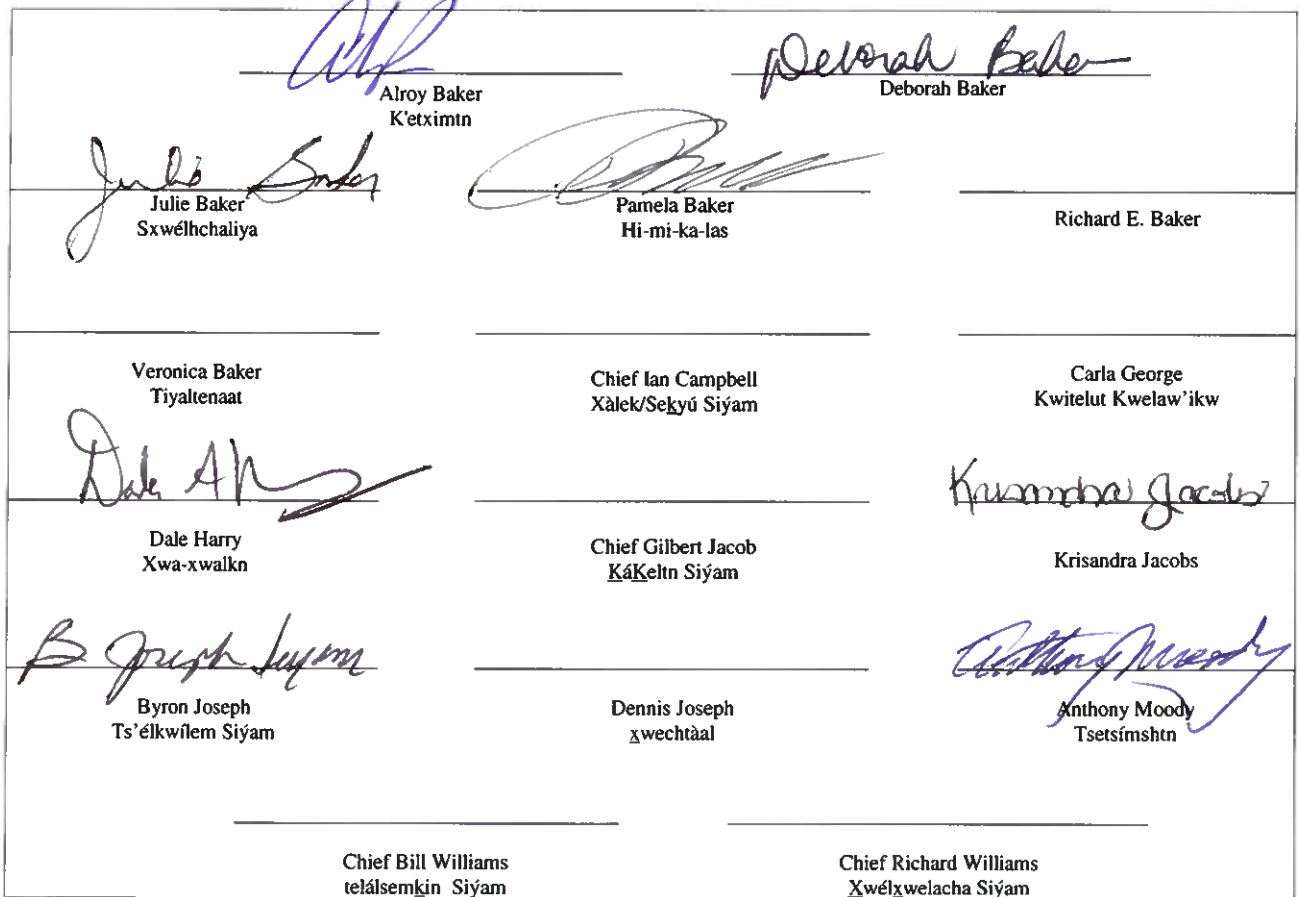 Deborah Baker
Alroy Baker
K'etximtn
Deborah Baker
Julie Baker
Julie Baker
Sxwélhchaliya
Pamela Baker
Hi-mi-ka-las
Richard E. Baker
Veronica Baker
Tiyaltenaat
Chief Ian Campbell
Xàlek/Seḵyú Siỳam
Carla George
Kwitelut Kwelaw'ikw
Dale
Krisandra Jacobs
Dale Harry
Xwa-xwalkn
Chief Gilbert Jacob
ḴáḴeltn Siỳam
Krisandra Jacobs
B Joseph Siyam
Anthony Moody
Byron Joseph
Ts'élkwílem Siỳam
Dennis Joseph
x̱wechtàal
Anthony Moody
Tsetsímshtn
Chief Bill Williams
telálsemḵin Siỳam
Chief Richard Williams
X̱wélx̱welacha Siỳam